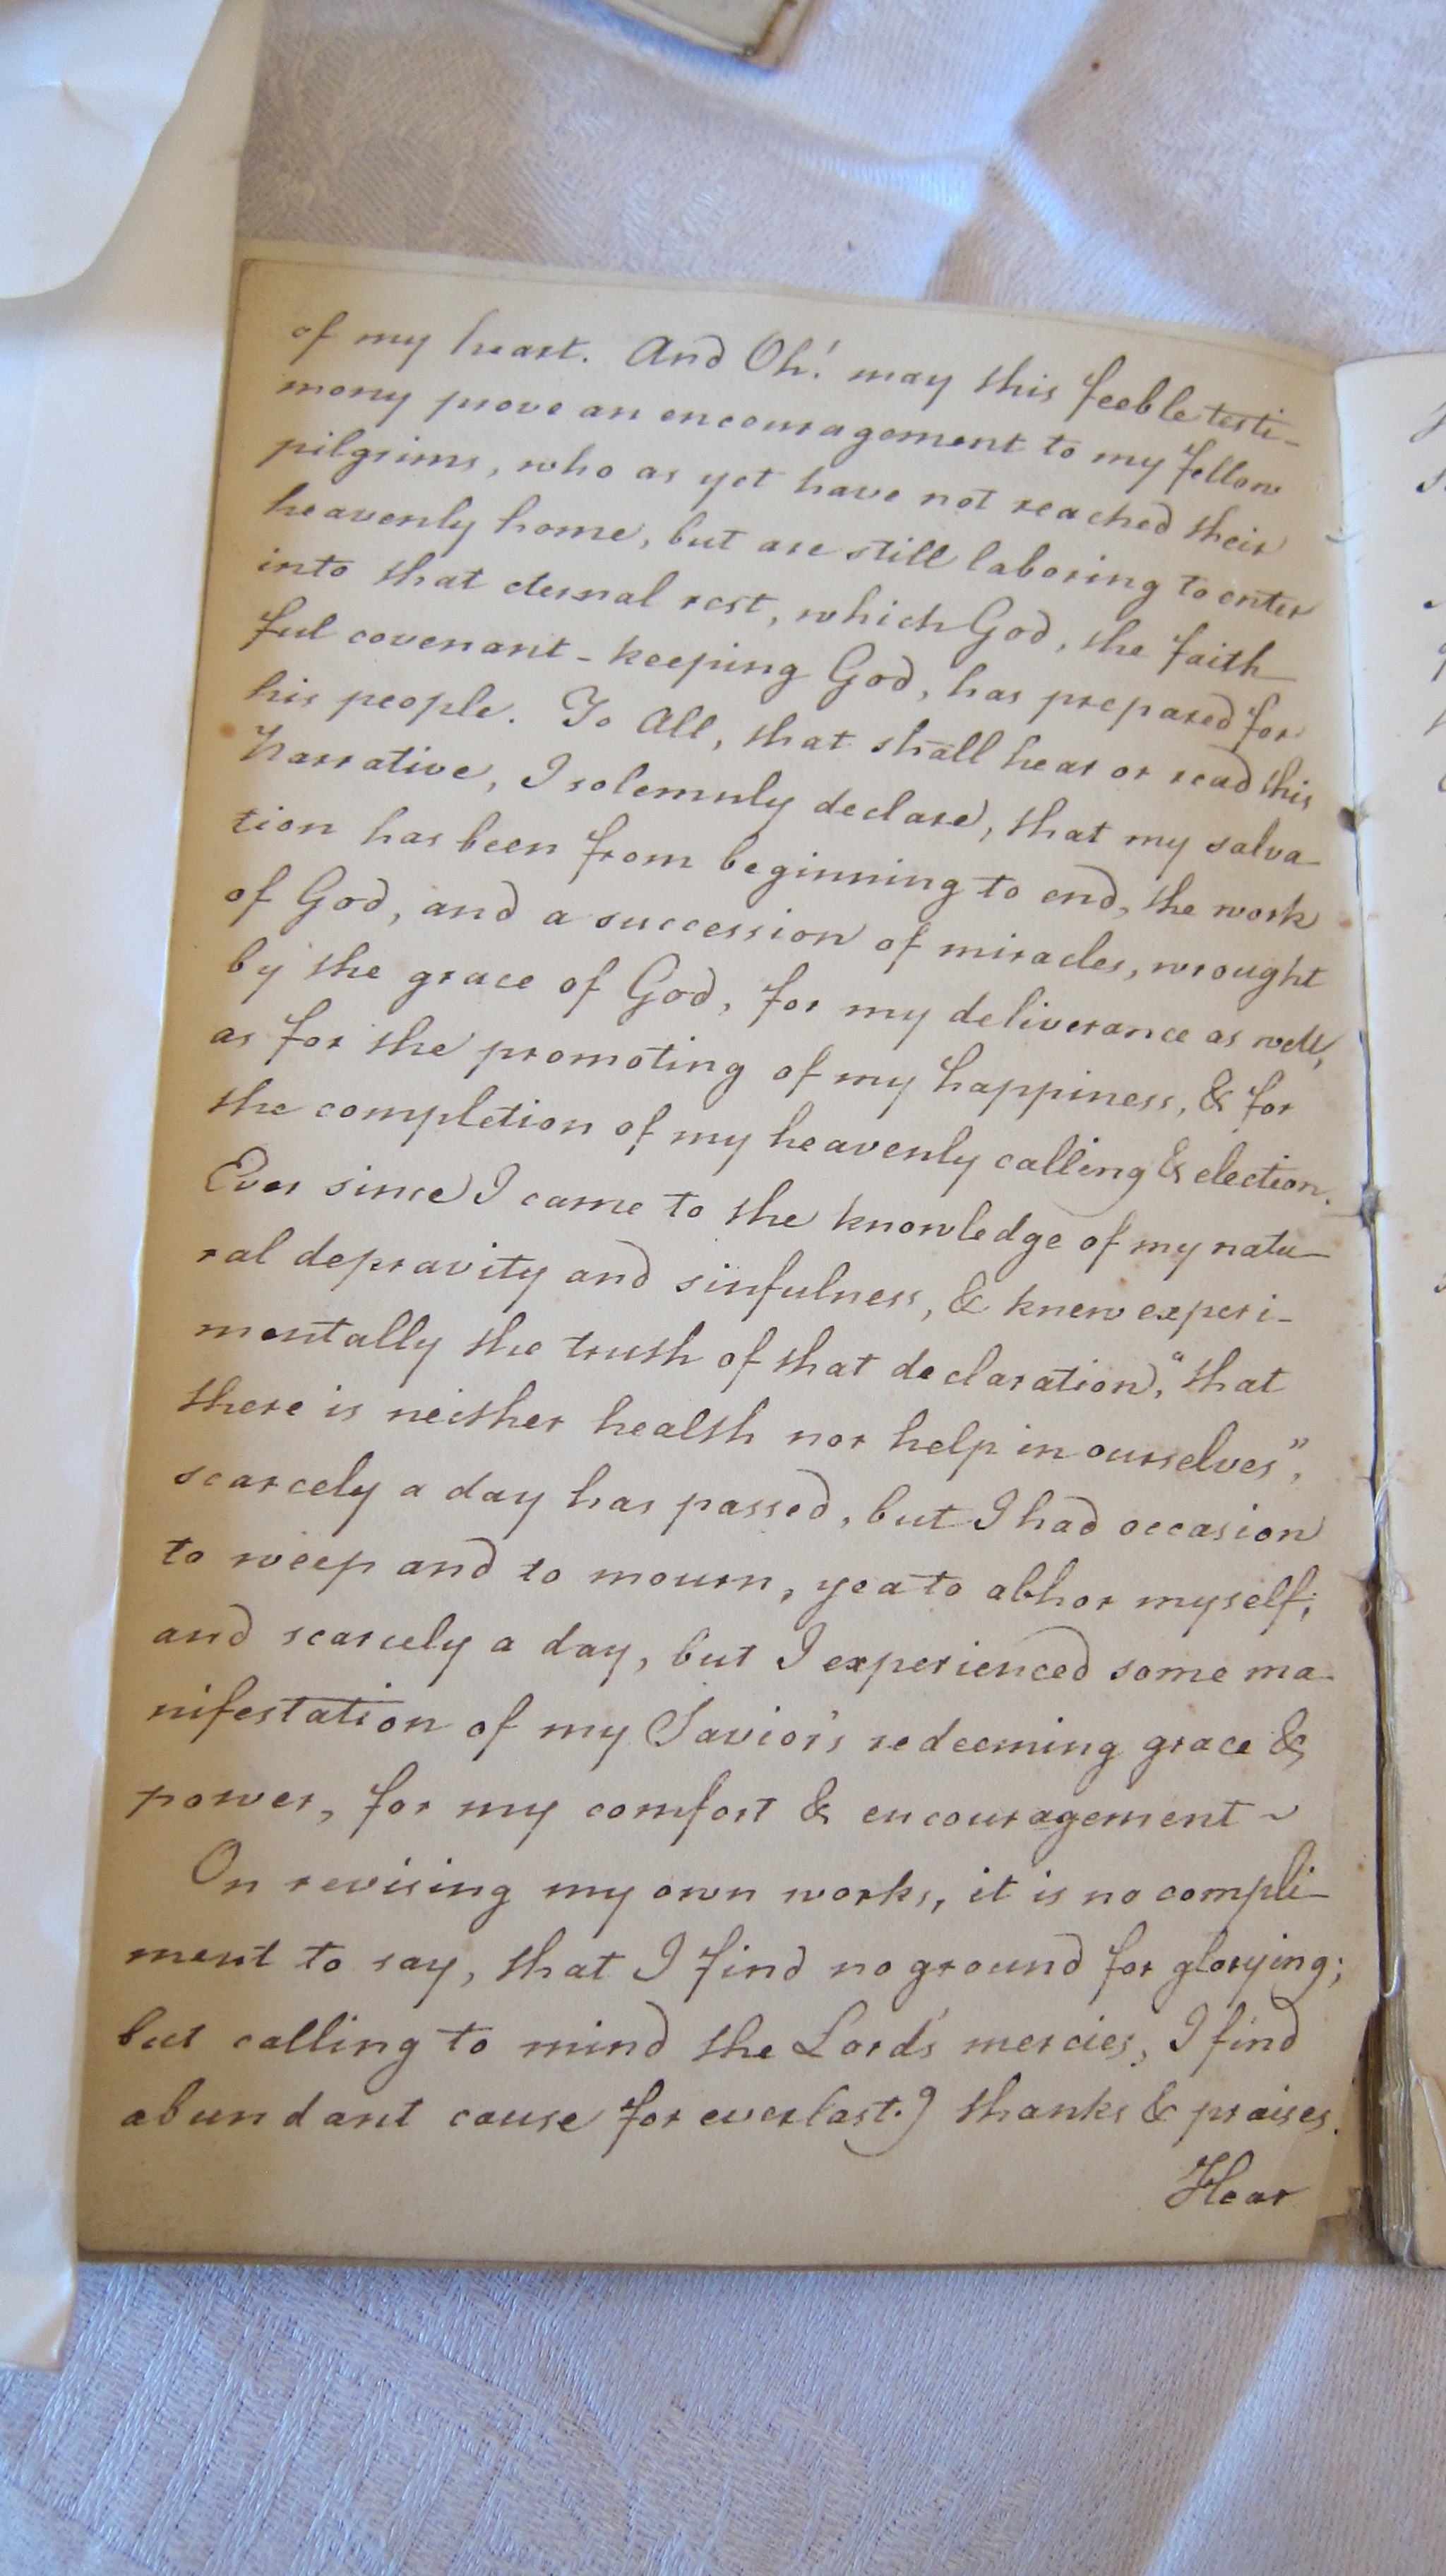 of my heart. And Oh! may this feeble testi-
mony prove an encouragement to my fellow
pilgrims, who as yet have not reached their
heavenly home, but are still laboring to enter
into that eternal rest, which God, the faith
ful covenant-keeping God, has prepared for
his people. To All, that shall hear or read this
Narrative, I solemnly declare, that my salva-
tion has been from beginning to end, the work
of God, and a succession of miracles, wrought
by the grace of God, for my deliverance as well,
as for the promoting of my happiness, & for
the completion of my heavenly calling & election.
Ever since I came to the knowledge of my natu-
ral depravity and sinfulness, & knew experi-
mentally the truth of that declaration, "that
there is neither health nor help in ourselves",
scarcely a day has passed, but I had occasion
to weep and to mourn, yea to abhor myself;
and scarcely a day, but I experienced some ma-
nifestation of my Savior's redeeming grace &
power, for my comfort & encouragement ~
On revising my own works, it is no compli-
ment to say, that I find no ground for glorying;
but calling to mind the Lord's mercies, I find
abundant cause for everlast.g thanks & praises.
Hear